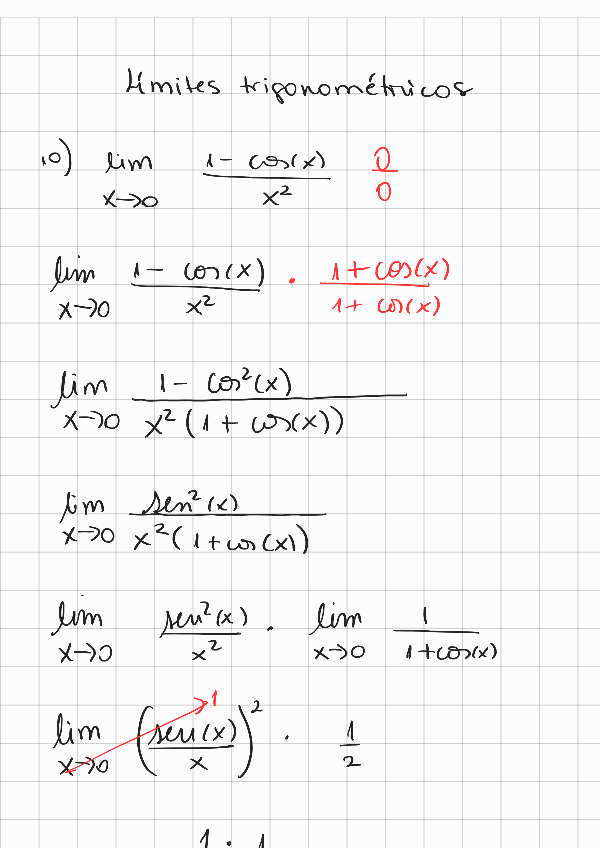 Límites trigonométricos
10) lim x→0 (1 - cos(x))/x² 0/0
lim x→0 (1 - cos(x))/x² · (1 + cos(x))/(1 + cos(x))
lim x→0 (1 - cos²(x))/(x²(1 + cos(x)))
lim x→0 sen²(x)/(x²(1 + cos(x)))
lim x→0 sen²(x)/x² · lim x→0 1/(1 + cos(x))
lim x→0 (sen(x)/x)² → 1 · 1/2